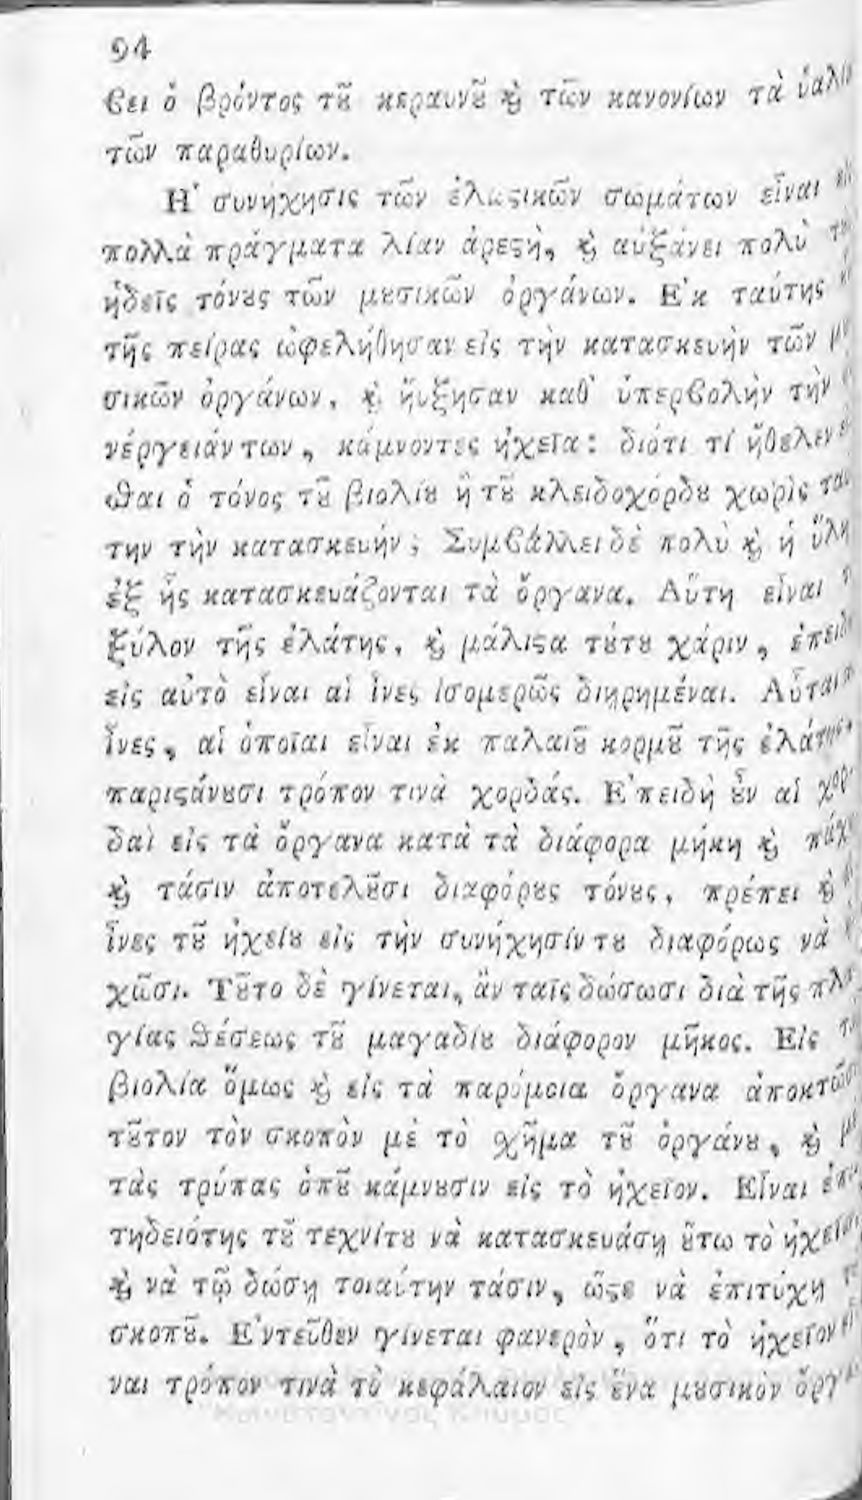 94
ϐει ὁ βρόντος τȣ͂ κεραυνȣ͂ ϗ̀ τῶν κανονίων τὰ ὑαλία
τῶν παραθυρίων.
Ἡ συνήχησις τῶν ἐλαϛικῶν σωμάτων εἶναι εἰς
πολλὰ πράγματα λίαν ἀρεϛὴ, ϗ̀ αὐξάνει πολὺ
ἡδεῖς τόνȣς τῶν μȣσικῶν ὀργάνων. Ἐκ ταύτης
τῆς πείρας ὠφελήθησαν εἰς τὴν κατασκευὴν τῶν μȣ
σικῶν ὀργάνων, ϗ̀ ἤυξησαν καθ' ὑπερϐολὴν τὴν
νέργειάν των, κάμνοντες ἠχεῖα: διότι τί ἤθελεν
σθαι ὁ τόνος τȣ͂ βιολίȣ ἢ τȣ͂ κλειδοχόρδȣ χωρὶς ταύ
την τὴν κατασκευήν; Συμϐάλλει δὲ πολὺ ϗ̀ ἡ ὕλη
ἐξ ἧς κατασκευάζονται τὰ ὄργανα. Αὕτη εἶναι
ξύλον τῆς ἐλάτης, ϗ̀ μάλιϛα τȣ́τȣ χάριν, ἐπειδὴ
εἰς αὐτὸ εἶναι αἱ ἶνες ἰσομερῶς διῃρημέναι. Αὗται
ἶνες, αἱ ὁποῖαι εἶναι ἐκ παλαιȣ͂ κορμȣ͂ τῆς ἐλάτης,
παριϛάνȣσι τρόπον τινὰ χορδάς. Ἐπειδὴ ȣ̓͂ν αἱ χορ
δαὶ εἰς τὰ ὄργανα κατὰ τὰ διάφορα μήκη ϗ̀ πάχη
ϗ̀ τάσιν ἀποτελȣ͂σι διαφόρȣς τόνȣς, πρέπει ϗ̀
ἶνες τȣ͂ ἠχείȣ εἰς τὴν συνήχησίν τȣ διαφόρως νὰ
χῶσι. Τȣ͂το δὲ γίνεται, ἂν ταῖς δώσωσι διὰ τῆς πλα
γίας θέσεως τȣ͂ μαγαδίȣ διάφορον μῆκος. Εἰς
βιολία ὅμως ϗ̀ εἰς τὰ παρόμοια ὄργανα ἀποκτῶσι
τȣ͂τον τὸν σκοπὸν μὲ τὸ σχῆμα τȣ͂ ὀργάνȣ, ϗ̀ μὲ
τὰς τρύπας ὁπȣ͂ κάμνȣσιν εἰς τὸ ἠχεῖον. Εἶναι ἐπι
τηδειότης τȣ͂ τεχνίτȣ νὰ κατασκευάσῃ ȣ̔́τω τὸ ἠχεῖον,
ϗ̀ νὰ τῷ δώσῃ τοιαύτην τάσιν, ὥϛε νὰ ἐπιτύχῃ
σκοπȣ͂. Ἐντεῦθεν γίνεται φανερὸν, ὅτι τὸ ἠχεῖον εἶ
ναι τρόπον τινὰ τὸ κεφάλαιον εἰς ἕνα μȣσικὸν ὄργα